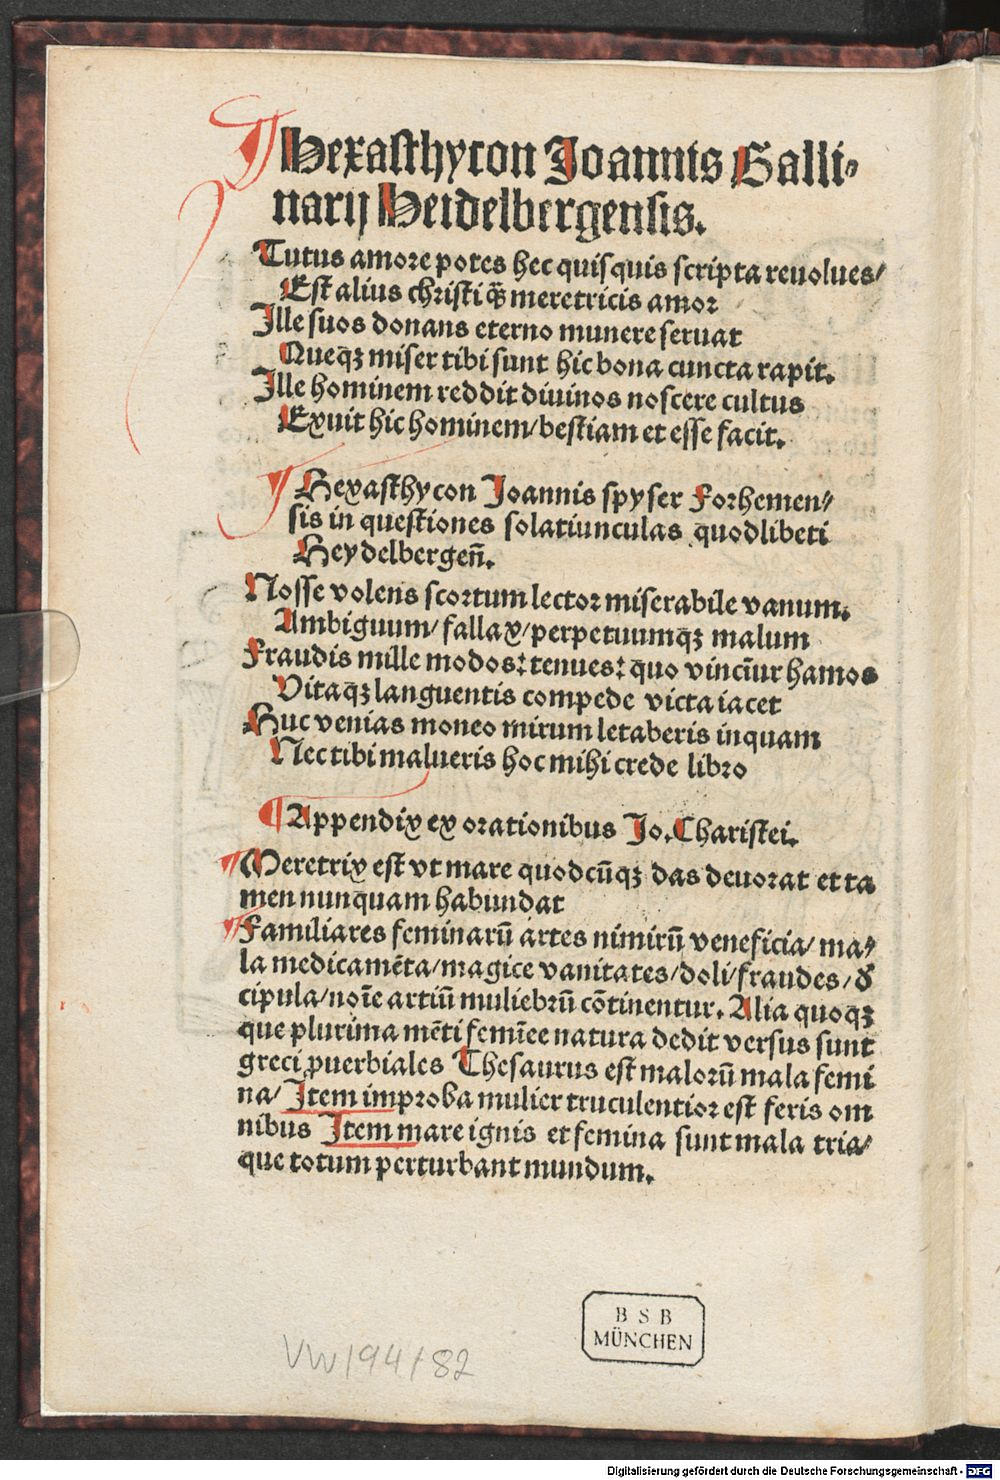 Hexasthycon Joannis Galli⸗
narij Heidelbergensis.
Tutus amore potes hec quisquis scripta reuolues/
Est alius christi q̃ȝ meretricis amor
Ille suos donans eterno munere seruat
Queqȝ miser tibi sunt hic bona cuncta rapit.
Ille hominem reddit diuinos noscere cultus
Exuit hic hominem/bestiam et esse facit.
Hexasthycon Joannis spyser Forhemen⸗
sis in questiones solatiunculas quodlibeti
Heydelbergeñ.
Nosse volens scortum lector miserabile vanum.
Ambiguum/fallax/perpetuumqȝ malum
Fraudis mille modos: tenues: quo vinciũr hamos
Vitaqȝ languentis compede victa iacet
Huc venias moneo mirum letaberis inquam
Nec tibi malueris hoc mihi crede libro
¶ Appendix ex orationibus Jo. Charistei.
Meretrix est vt mare quodcũqȝ das deuorat et ta
men nunquam habundat
Familiares feminarũ artes nimirũ veneficia/ma⸗
la medicamẽta/magice vanitates/doli/fraudes/ð
cipula/noĩe artiũ muliebrũ cõtinentur. Alia quoqȝ
que plurima mẽti femĩee natura dedit versus sunt
greci ꝓuerbiales Thesaurus est malorũ mala femi
na/ Item improba mulier truculentior est feris om
nibus Item mare ignis et femina sunt mala tria/
que totum perturbant mundum.
BSB
MÜNCHEN
VW/94/82
Digitalisierung gefördert durch die Deutsche Forschungsgemeinschaft - DFG